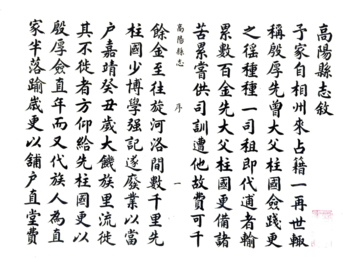 高陽縣志敘
予家自相州來占籍一再世輙
稱殷厚先曾大父柱國儉踐更
之徭種種一司租即代逋者輸
累數百金先大父柱國更備諸
苦累嘗供司訓遭他故費可千
高陽縣志 序 一
餘金至往旋河洛間數千里先
柱國少博學强記遂廢業以當
户嘉靖癸丑歲大饑族里流徙
其不徙者方仰給先柱國更以
殷厚僉直年而又代族人為直
家半落踰歲更以舖户直堂費